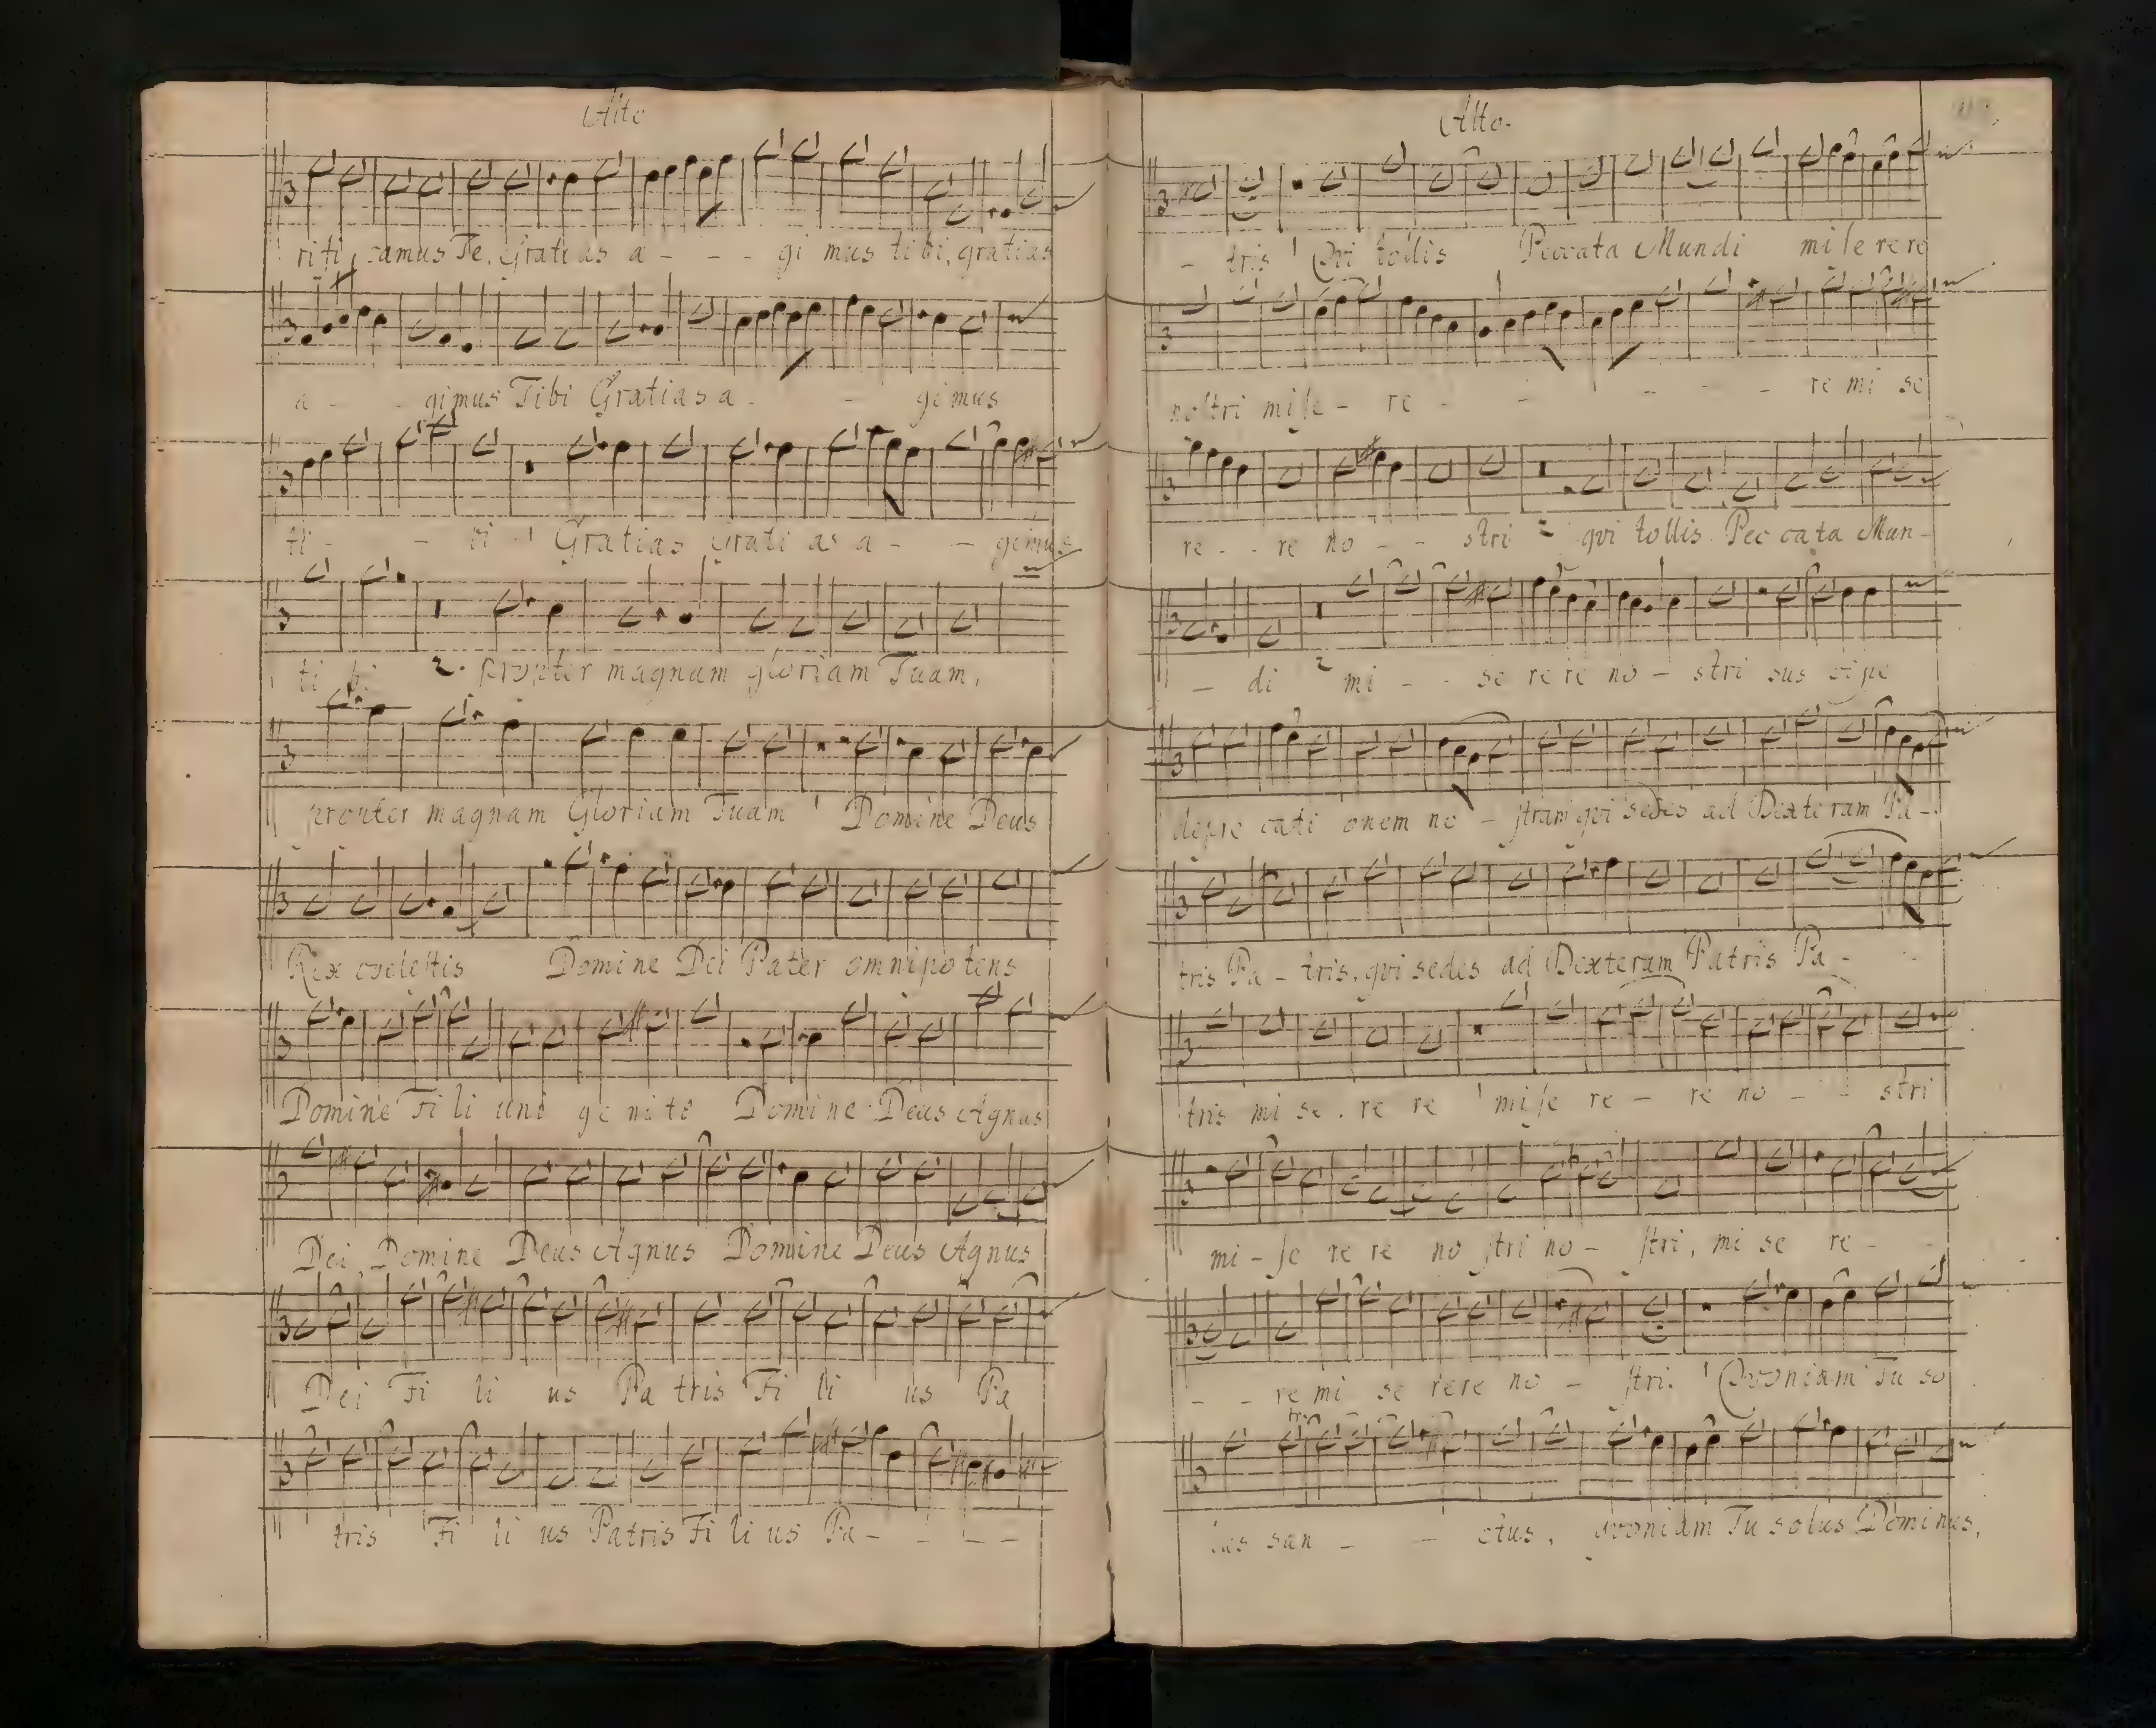 Alto
rifi camus Te, Gratias a - - - gi mus tibi, gratias
a - - gimus Tibi Gratias a - - gimus
ti - - bi Gratias Grati as a - - gimus
ti bi. 2. propter magnam gloriam Tuam,
propter magnam Gloriam Tuam Domine Deus
Rex coelestis Domine Dei Pater omnipotens
Domine Fi li uni ge nite Domine Deus Agnus
Dei, Domine Deus Agnus Domine Deus Agnus
Dei Fi li us Pa tris Fi li us Pa
tris Fi li us Patris Fi li us Pa - - - -
Alto.
- tris Qvi tollis Peccata Mundi mi se re re
nostri mise - re - - - - - re mi se
re - - re no - - stri 2 qvi tollis Pec cata Mun -
- di 2 mi - - se re re no - stri sus cipe
depre cati onem no - stram qvi sedes ad Dexte ram Pa -
tris Pa - tris, qvi sedes ad Dexteram Patris Pa - -
tris mi se . re re mise re - re no - - stri
mi - se re re no stri no - stri, mi se re - -
- - re mi se rere no - stri. Qvoniam Tu so
tr
lus san - - ctus, qvoniam Tu solus Dominus,